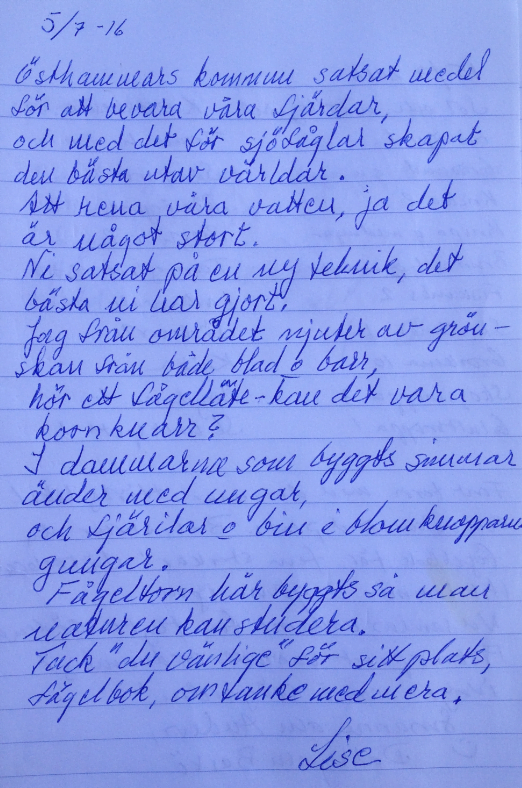 5/7 -16
Östhammars kommun satsat medel
för att bevara våra fjärdar,
och med det för sjöfåglar skapat
den bästa utav världar.
Att rena våra vatten, ja det
är något stort.
Ni satsat på en ny teknik, det
bästa ni har gjort.
Jag från området njuter av grön-
skan från både blad o barr,
hör ett fågelläte - kan det vara
kornknarr?
I dammarna som byggts simmar
änder med ungar,
och fjärilar o bin i blomknopparna
gungar.
Fågeltorn här byggts så man
naturen kan studera.
Tack "du vänlige" för sittplats,
fågelbok, omtanke med mera.
Lise